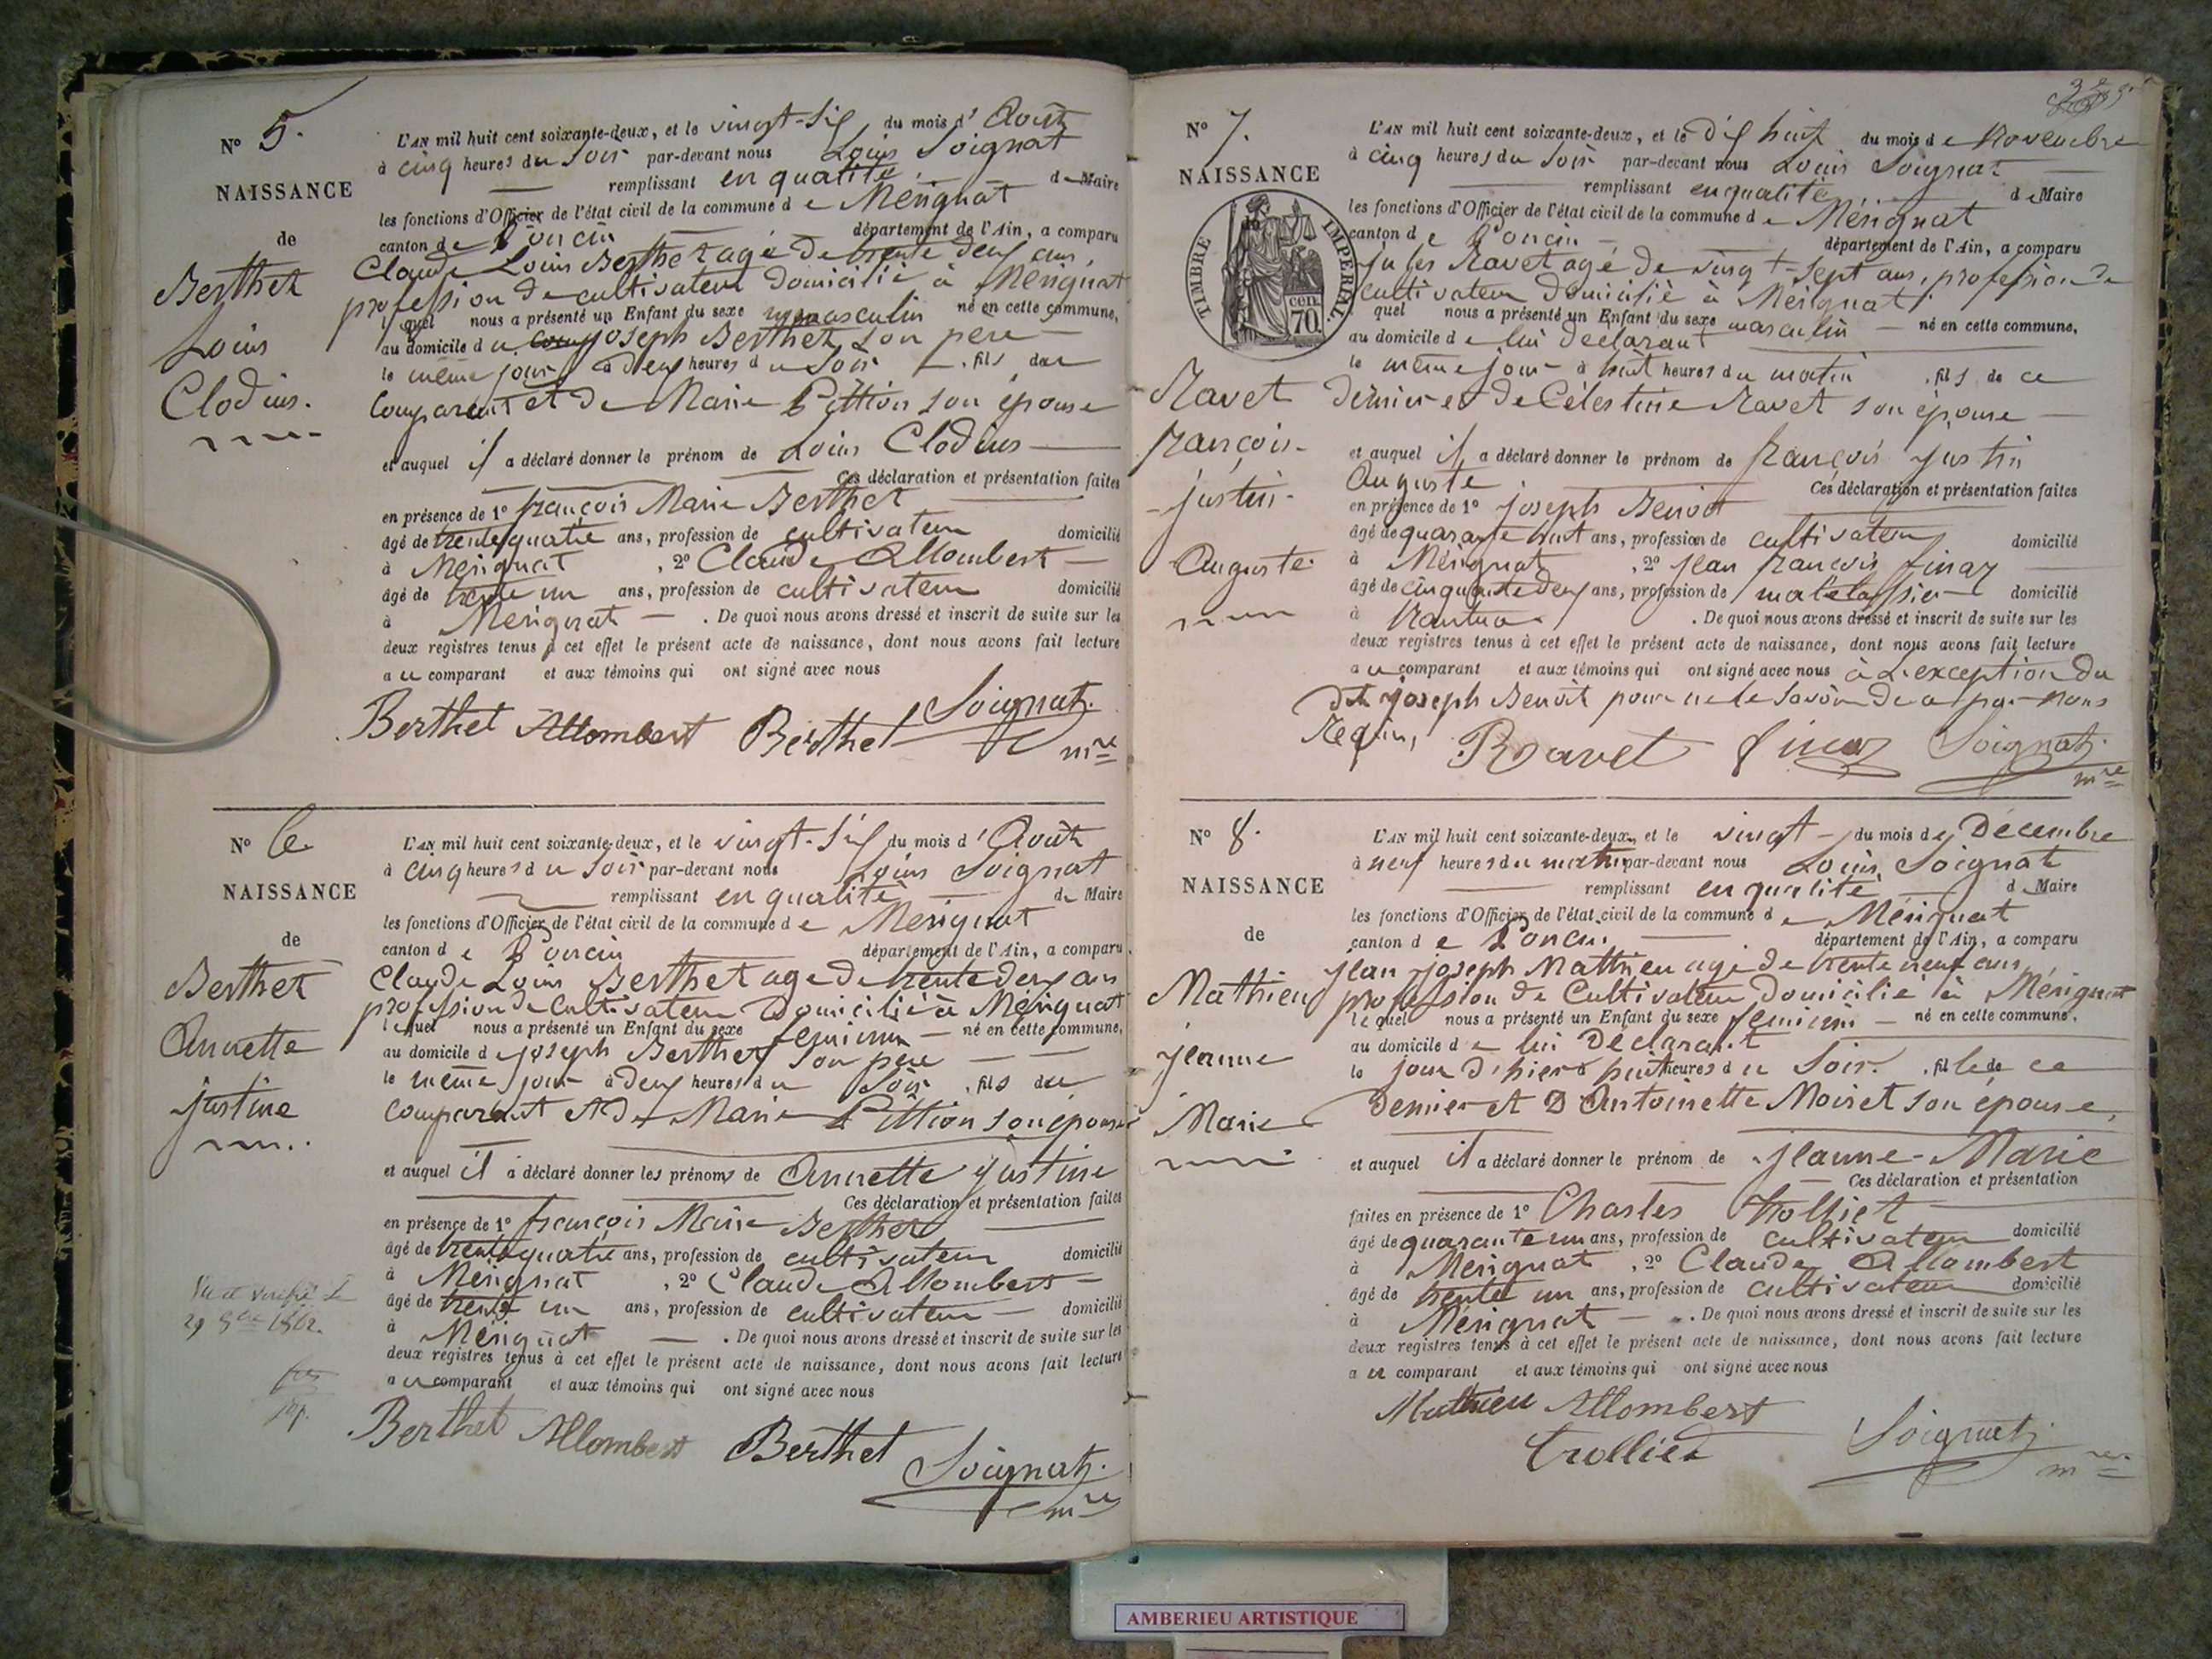 N° 5.
NAISSANCE
de
Berthet
Louis
Clodius.
L'AN mil huit cent soixante-deux, et le vingt-six du mois d' Août
à cinq heures du soir par-devant nous Louis Soignat
remplissant en qualité de Maire
les fonctions d'Officier de l'état civil de la commune de Mérignat
canton de Poncin département de l'Ain, a comparu
Claude Louis Berthet agé de trente deux ans,
profession de cultivateur domicilié à Mérignat
quel nous a présenté un Enfant du sexe masculin né en cette commune,
au domicile du Joseph Berthet son père
le même jour à deux heures du soir fils du
comparant et de Marie Pittion son épouse
et auquel il a déclaré donner le prénom de Louis Clodius
Ces déclaration et présentation faites
en présence de 1° françois Marie Berthet
âgé de trente quatre ans, profession de cultivateur domicilié
à Mérignat, 2° Claude Allombert
âgé de trente un ans, profession de cultivateur domicilié
à Mérignat . De quoi nous avons dressé et inscrit de suite sur les
deux registres tenus à cet effet le présent acte de naissance, dont nous avons fait lecture
au comparant et aux témoins qui ont signé avec nous
Berthet Allombert Berthet Soignat
mre
N° 6
NAISSANCE
de
Berthet
Annette
justine
L'AN mil huit cent soixante-deux, et le vingt-six du mois d'Août
à cinq heures du soir par-devant nous Louis Soignat
remplissant en qualité de Maire
les fonctions d'Officier de l'état civil de la commune de Mérignat
canton de Poncin département de l'Ain, a comparu
Claude Louis Berthet agé de trente deux ans
profession de cultivateur domicilié à Mérignat
lequel nous a présenté un Enfant du sexe feminin né en cette commune,
au domicile de joseph Berthet son père
le même jour à deux heures du soir, fils du
comparant et de Marie Pittion son épouse
et auquel il a déclaré donner les prénoms de Annette justine
Ces déclaration et présentation faites
en présence de 1° françois Marie Berthet
âgé de trente quatre ans, profession de cultivateur domicilié
à Mérignat, 2° Claude Allombert
âgé de trente un ans, profession de cultivateur domicilié
à Mérignat . De quoi nous avons dressé et inscrit de suite sur les
deux registres tenus à cet effet le présent acte de naissance, dont nous avons fait lecture
au comparant et aux témoins qui ont signé avec nous
Vu et vérifié le
29 9bre 1862.
Berthet Allombert Berthet
Soignat
mre
N° 7.
NAISSANCE
TIMBRE IMPERIAL
70 cen.
Ravet
françois
justin
Auguste
L'AN mil huit cent soixante-deux, et le dix huit du mois de Novembre
à cinq heures du soir par-devant nous Louis Soignat
remplissant en qualité de Maire
les fonctions d'Officier de l'état civil de la commune de Mérignat
canton de Poncin département de l'Ain, a comparu
jules Ravet agé de vingt-sept ans, profession de
cultivateur domicilié à Mérignat
quel nous a présenté un Enfant du sexe masculin né en cette commune,
au domicile de lui déclarant
le même jour à huit heures du matin, fils de ce
dernier et de Célestine Ravet son épouse
et auquel il a déclaré donner le prénom de françois justin
Auguste Ces déclaration et présentation faites
en présence de 1° joseph Benoit
âgé de quarante huit ans, profession de cultivateur domicilié
à Mérignat, 2° jean françois finaz
âgé de cinquante deux ans, profession de matelassier domicilié
à Nantua . De quoi nous avons dressé et inscrit de suite sur les
deux registres tenus à cet effet le présent acte de naissance, dont nous avons fait lecture
au comparant et aux témoins qui ont signé avec nous à L'exception du
dit joseph Benoit pour ne le savoir de ce par nous
Requis,
Ravet finaz Soignat
mre
N° 8.
NAISSANCE
de
Mathieu
jeanne
Marie
L'AN mil huit cent soixante-deux, et le vingt du mois de Décembre
à neuf heures du matin par-devant nous Louis Soignat
remplissant en qualité de Maire
les fonctions d'Officier de l'état civil de la commune de Mérignat
canton de Poncin département de l'Ain, a comparu
jean joseph Mathieu agé de trente neuf ans
profession de Cultivateur domicilié à Mérignat
lequel nous a présenté un Enfant du sexe feminin né en cette commune,
au domicile de lui déclarant
le jour d'hier à huit heures du soir, fille de ce
dernier et D'Antoinette Moiret son épouse,
et auquel il a déclaré donner le prénom de jeanne-Marie
Ces déclaration et présentation
faites en présence de 1° Charles Trolliet
âgé de quarante un ans, profession de cultivateur domicilié
à Mérignat, 2° Claude Allombert
âgé de trente un ans, profession de cultivateur domicilié
à Mérignat . De quoi nous avons dressé et inscrit de suite sur les
deux registres tenus à cet effet le présent acte de naissance, dont nous avons fait lecture
au comparant et aux témoins qui ont signé avec nous
Mathieu Allombert
Trolliet Soignat
mre
AMBERIEU ARTISTIQUE